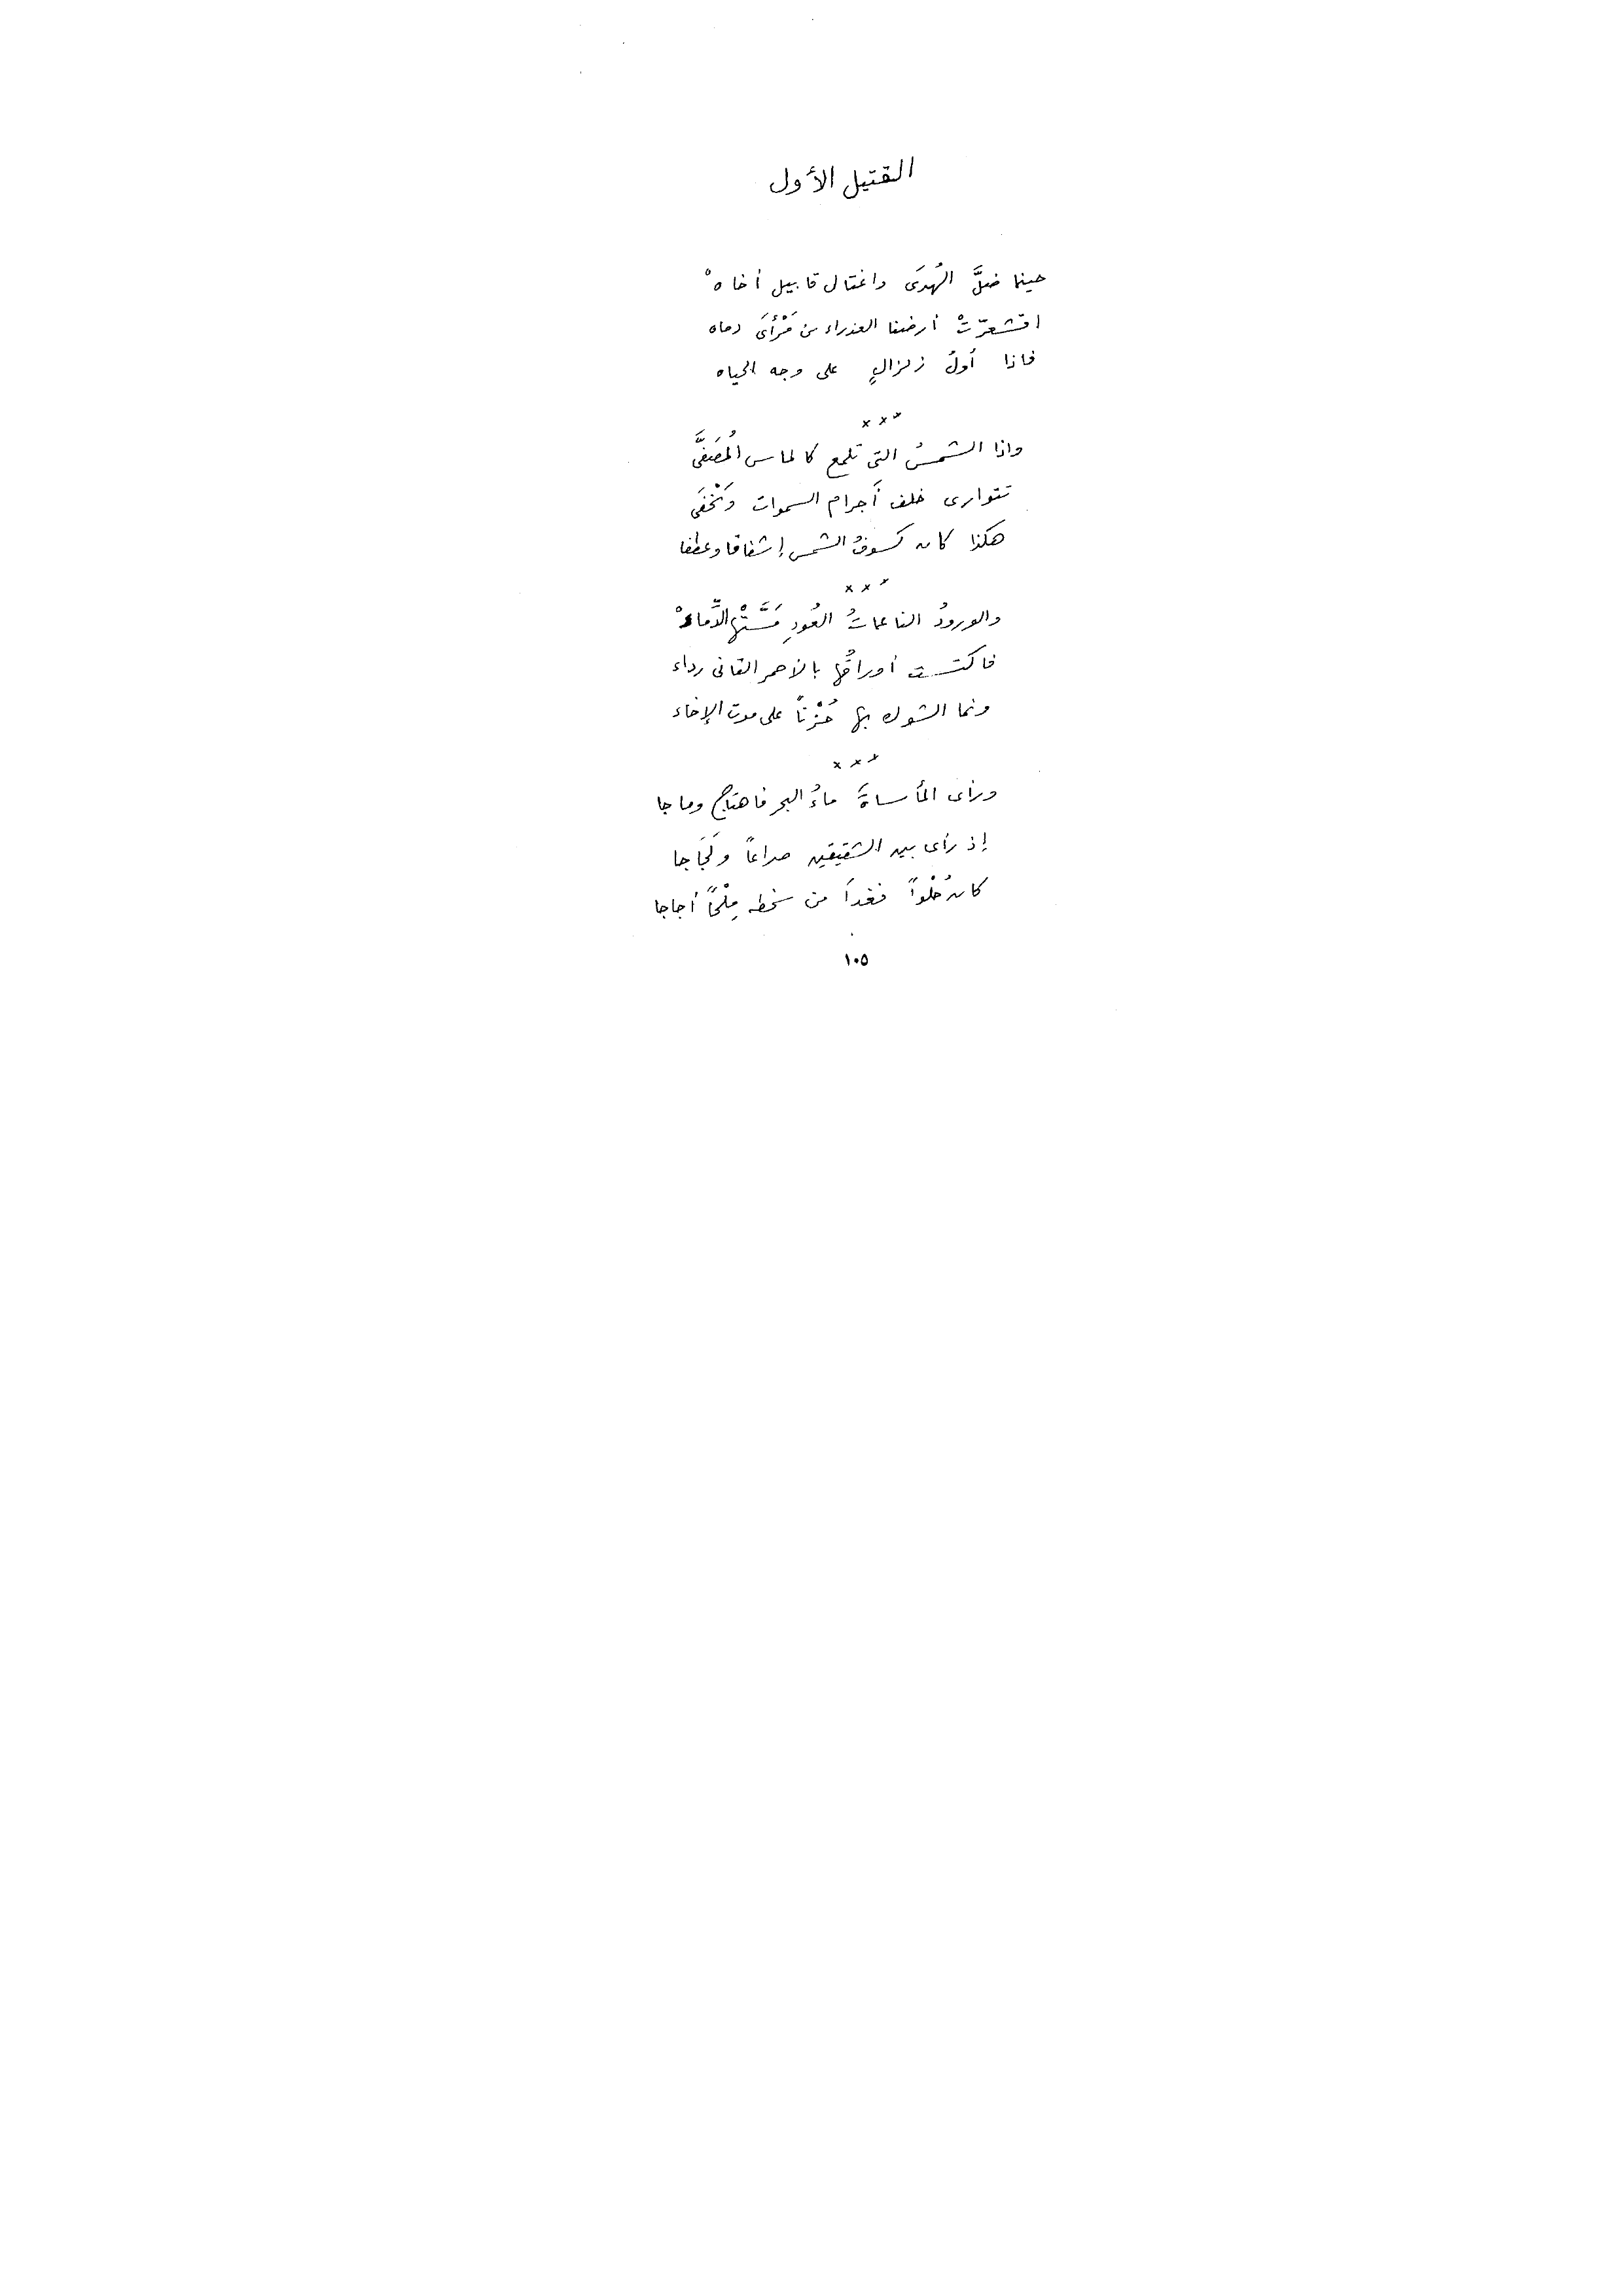 القتيل الأول
حينما ضلَّ الهُدَى واغتال قابيل أخاهْ
اقشعرّتْ أرضنا العذراء من مَرْأَى دماه
فاذا أولُ زلزالٍ على وجه الحياه
× × ×
واذا الشمسُ التى تلمع كالماس المُصَفَّى
تتوارى خلف أَجرام السموات وَتَخْفَى
هكذا كان كسوفُ الشمس إشفاقا وعطفا
× × ×
والورودُ الناعماتُ العُودِ مَسَّتْها الدِّماءْ
فاكتست أوراقُها بالأحمر القانى رداء
ونما الشوك بها حُزْناً على موت الإخاء
× × ×
ورأى المأساةَ ماءُ البحر فاهتاج وماجا
إذ رأى بين الشقيقين صراعاً ولَجَاجا
كان حُلْواً فغدَا من سخطه مِلْحاً أجاجا
١٠٥